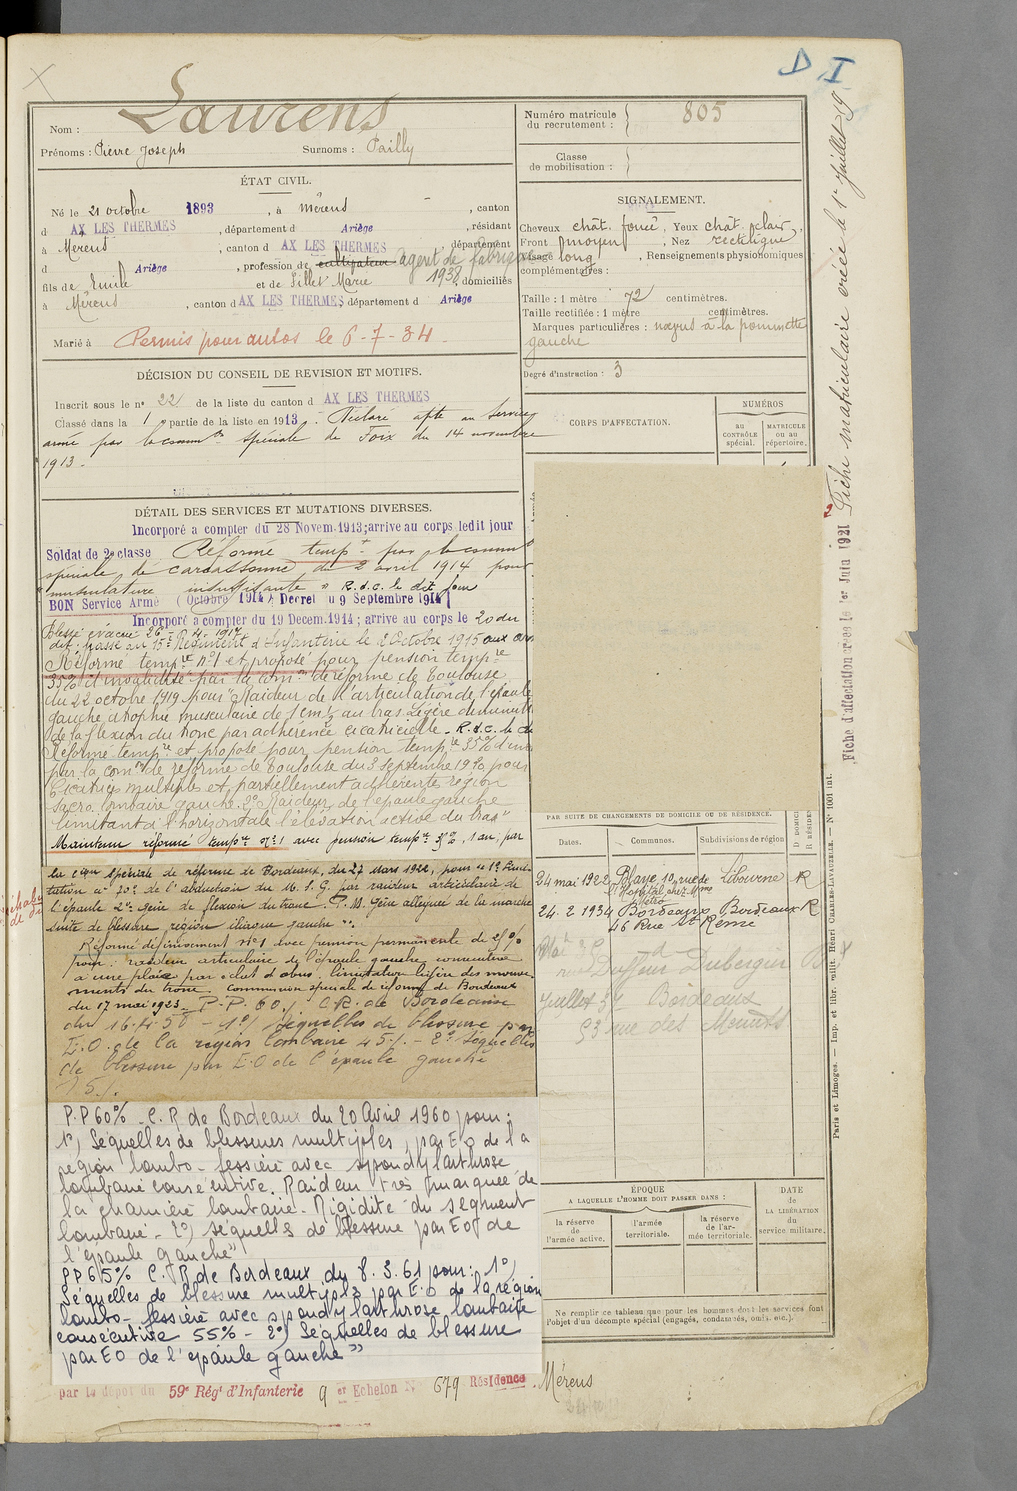 D I
Laurens
Nom :
Prénoms : Pierre Joseph Surnoms : Pailly
ÉTAT CIVIL.
Né le 21 octobre 1893, à Mérens, canton
d AX LES THERMES, département d Ariège, résidant
à Mérens, canton d AX LES THERMES, département
d Ariège, profession de cultivateur agent de fabrique
1938
fils de Emile et de Sillet Marie, domiciliés
à Mérens, canton d AX LES THERMES, département d Ariège
Marié à Permis pour autos le 6-7-34.
DÉCISION DU CONSEIL DE REVISION ET MOTIFS.
Inscrit sous le n° 22 de la liste du canton d AX LES THERMES
Classé dans la 1 partie de la liste en 1913. Déclaré apte au service
armé par la comm on spéciale de Foix du 14 novembre
1913.
DÉTAIL DES SERVICES ET MUTATIONS DIVERSES.
Incorporé a compter du 28 Novem. 1913; arrive au corps ledit jour
Soldat de 2e classe Réformé temp t par la comm
spéciale de Carcassonne du 2 avril 1914 pour
"musculature insuffisante" R.d.C. le dit jour
BON Service Armé (Octobre 1914) Decret u 9 Septembre 1914
Incorporé a compter du 19 Decem. 1914; arrive au corps le 20 du
Blessé évacué 26 - 4 - 1917
dit. passé au 15e Régiment d'Infanterie le 2 Octobre 1915 aux ar
Réformé temp re n°1 et proposé pour pension temp re
35% d'invalidité par la com on de réforme de Toulouse
du 22 octobre 1919 pour "Raideur de l'articulation de l'épaule
gauche, atrophie musculaire de 1 cm 1/2 au bras. Légère diminution
de la flexion du tronc par adhérence cicatricielle. R.d.C. le d
Réformé temp re et proposé pour pension temp re 35% d'inv
par la com on de réforme de Toulouse du 3 Septembre 1920 pour
Cicatrices multiples et partiellement adhérentes région
sacro lombaire gauche. 2° Raideur de l'épaule gauche
limitant à l'horizontale l'élévation active du bras"
Maintenu réformé temp re n°1 avec pension temp re 35%, 1 an, par
la c on spéciale de réforme de Bordeaux, du 27 mars 1922, pour "1° limi-
tation à 20° de l'abduction du M.S.G. par raideur articulaire de
l'épaule 2° gêne de flexion du tronc. P.M. Gêne alléguée de la marche
suite de blessure, région iliaque gauche".
Réformé définivement N°1 avec pension permanente de 25%
pour : raideur articulaire de l'épaule gauche consécutive
à une plaie par éclat d'obus, limitation légère des mouve-
ments du tronc. Commission spéciale de réforme de Bordeaux
du 17 mai 1923. P.P. 60% C.R. de Bordeaux
du 16.4.58 - 1°/ Séquelles de blessure par
E.O. de la région lombaire 45% - 2° Séquelles
de blessure par E.O de l'épaule gauche
15%.
P.P 60% - C.R de Bordeaux du 20 Avril 1960 pour :
1°) Séquelles de blessures multiples par E O de la
région lombo-fessière avec spondylarthrose
lombaire consécutive. Raideur très marquée de
la charnière lombaire. Rigidité du segment
lombaire - 2°) séquelles de blessure par EO de
l'épaule gauche"
PP 65% C.R de Bordeaux du 8.3.61 pour : 1°)
Séquelles de blessure multiples par E.O de la région
lombo-fessière avec spondylarthrose lombaire
consécutive 55% - 2°) Séquelles de blessure
par EO de l'épaule gauche"
par le dépôt du 59e Régt d'Infanterie 9 er Echelon N° 679 Résidence Mérens
Numéro matricule du recrutement : 805
Classe de mobilisation :
SIGNALEMENT.
Cheveux chât. foncé, Yeux chât. clair,
Front moyen, Nez rectiligne
Visage long, Renseignements physionomiques
complémentaires :
Taille : 1 mètre 72 centimètres.
Taille rectifiée : 1 mètre centimètres.
Marques particulières : nævus à la pommette
gauche
Degré d'instruction : 3
CORPS D'AFFECTATION.
NUMÉROS
AU CONTRÔLE spécial.
MATRICULE ou au répertoire.
PAR SUITE DE CHANGEMENTS DE DOMICILE OU DE RÉSIDENCE.
Dates. Communes. Subdivisions de région D DOMICI R RÉSIDEN
24 mai 1922 Blaye 10, rue de l'Hopital chez Mme Libourne R
24.2 1934 Bordeaux Bordeaux R
46 Rue St Rémie
rue Duffour Dubergier
Juillet 57 Bordeaux
53 rue des Menuts
ÉPOQUE
A LAQUELLE L'HOMME DOIT PASSER DANS :
la réserve de l'armée active.
l'armée territoriale.
la réserve de l'armée territoriale.
DATE de LA LIBÉRATION du service militaire.
Ne remplir ce tableau que pour les hommes dont les services font
l'objet d'un décompte spécial (engagés, condamnés, omis, etc.).
Fiche matriculaire créée le 1er juillet 19
Fiche d'affectation créée le 1er Juin 1921
Paris et Limoges. — Imp. et libr. milit. Henri CHARLES-LAVAUZELLE. — N° 1001 int.